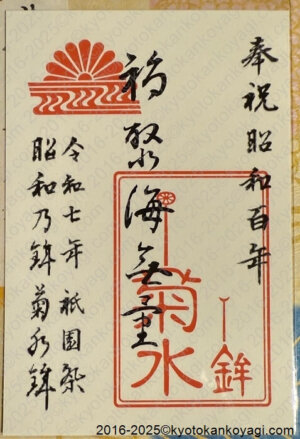 奉祝昭和百年
福聚海無量
菊水
鉾
令和七年 祇園祭
昭和乃鉾 菊水鉾
2016-2025©kyotokankoyagi.com